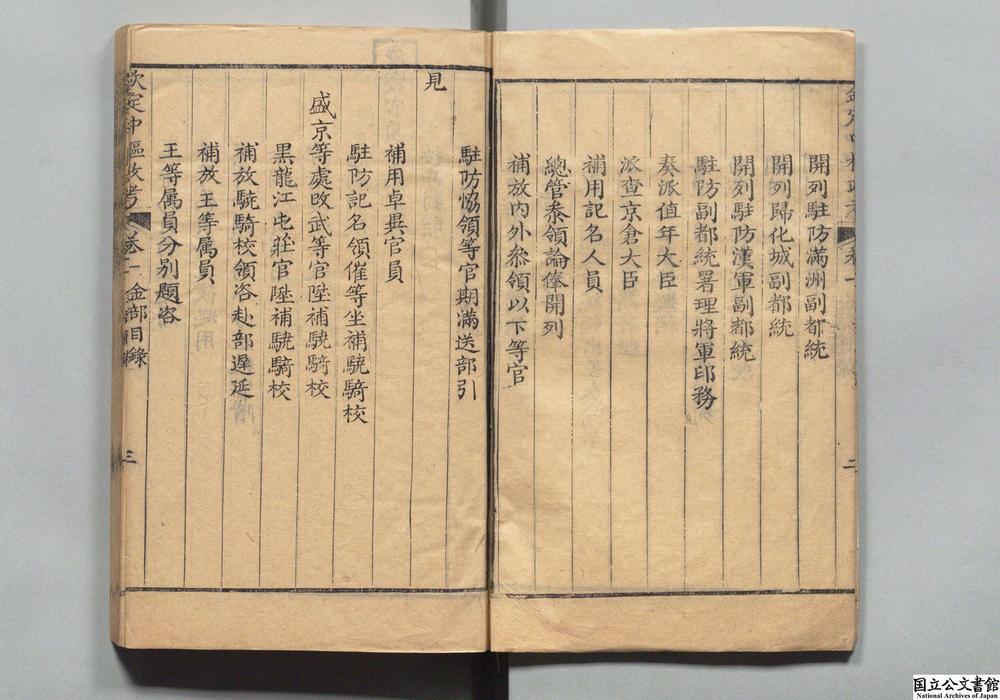 開列駐防滿洲副都統
開列歸化城副都統
開列駐防漢軍副都統
駐防副都統署理將軍印務
奏派值年大臣
派查京倉大臣
補用記名人員
總管叅領論俸開列
補放內外叅領以下等官
二
駐防恊領等官期滿送部引
見
補用卓異官員
駐防記名領催等坐補驍騎校
盛京等處改武等官陞補驍騎校
黑龍江屯莊官陞補驍騎校
補放驍騎校領咨赴部遲延
補放王等属員
王等属員分别題咨
欽定中樞政考 卷一 目錄
三
国立公文書館
National Archives of Japan